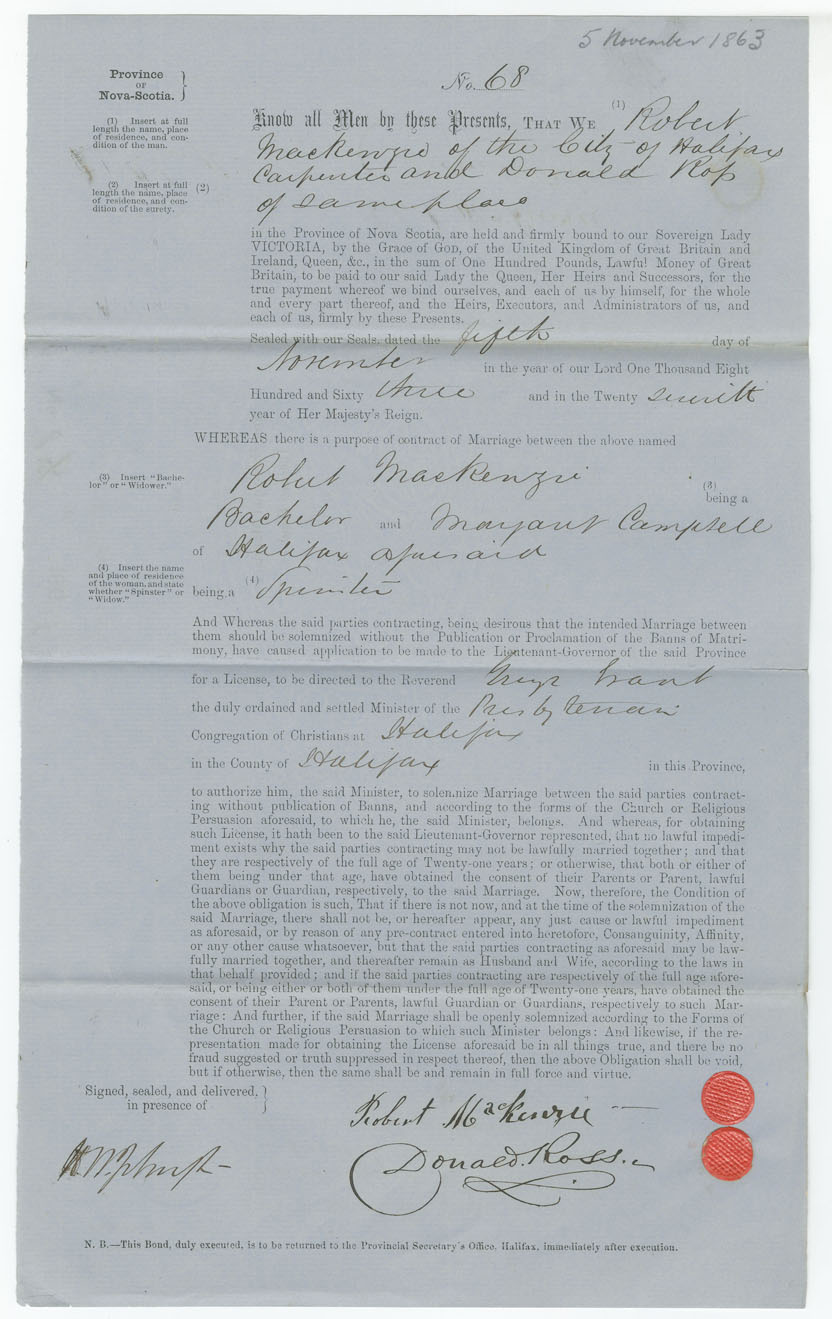 5 November 1863
Province
OF
Nova-Scotia.
No. 68
(1) Insert at full
length the name, place
of residence, and con-
dition of the man.
Know all Men by these Presents, THAT WE (1) Robert
Mackenzie of the City of Halifax
(2) Insert at full
length the name, place
of residence, and con-
dition of the surety.
(2)
Carpenter and Donald Ross
of same place
in the Province of Nova Scotia, are held and firmly bound to our Sovereign Lady
VICTORIA, by the Grace of GOD, of the United Kingdom of Great Britain and
Ireland, Queen, &c., in the sum of One Hundred Pounds, Lawful Money of Great
Britain, to be paid to our said Lady the Queen, Her Heirs and Successors, for the
true payment whereof we bind ourselves, and each of us by himself, for the whole
and every part thereof, and the Heirs, Executors, and Administrators of us, and
each of us, firmly by these Presents.
Sealed with our Seals, dated the fifth day of
November in the year of our Lord One Thousand Eight
Hundred and Sixty three and in the Twenty seventh
year of Her Majesty's Reign.
WHEREAS there is a purpose of contract of Marriage between the above named
(3) Insert "Bache-
lor" or "Widower."
Robert Mackenzie (3) being a
Bachelor and Margaret Campbell
of Halifax aforesaid
(4) Insert the name
and place of residence
of the woman, and state
whether "Spinster" or
"Widow."
being a (4) Spinster
And Whereas the said parties contracting, being desirous that the intended Marriage between
them should be solemnized without the Publication or Proclamation of the Banns of Matri-
mony, have caused application to be made to the Lieutenant-Governor of the said Province
for a License, to be directed to the Reverend George Grant
the duly ordained and settled Minister of the Presbyterian
Congregation of Christians at Halifax
in the County of Halifax in this Province,
to authorize him, the said Minister, to solemnize Marriage between the said parties contract-
ing without publication of Banns, and according to the forms of the Church or Religious
Persuasion aforesaid, to which he, the said Minister, belongs. And whereas, for obtaining
such License, it hath been to the said Lieutenant-Governor represented, that no lawful impedi-
ment exists why the said parties contracting may not be lawfully married together; and that
they are respectively of the full age of Twenty-one years; or otherwise, that both or either of
them being under that age, have obtained the consent of their Parents or Parent, lawful
Guardians or Guardian, respectively, to the said Marriage. Now, therefore, the Condition of
the above obligation is such, That if there is not now, and at the time of the solemnization of the
said Marriage, there shall not be, or hereafter appear, any just cause or lawful impediment
as aforesaid, or by reason of any pre-contract entered into heretofore, Consanguinity, Affinity,
or any other cause whatsoever, but that the said parties contracting as aforesaid may be law-
fully married together, and thereafter remain as Husband and Wife, according to the laws in
that behalf provided; and if the said parties contracting are respectively of the full age afore-
said, or being either or both of them under the full age of Twenty-one years, have obtained the
consent of their Parent or Parents, lawful Guardian or Guardians, respectively to such Mar-
riage: And further, if the said Marriage shall be openly solemnized according to the Forms of
the Church or Religious Persuasion to which such Minister belongs: And likewise, if the re-
presentation made for obtaining the License aforesaid be in all things true, and there be no
fraud suggested or truth suppressed in respect thereof, then the above Obligation shall be void,
but if otherwise, then the same shall be and remain in full force and virtue.
Signed, sealed, and delivered,
in presence of
Robert Mackenzie
Donald Ross
N. B.—This Bond, duly executed, is to be returned to the Provincial Secretary's Office, Halifax, immediately after execution.